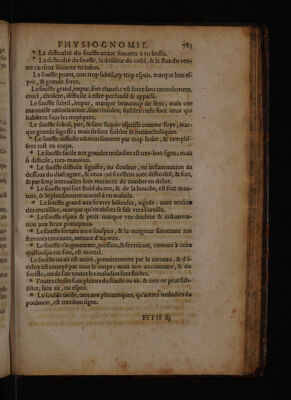 PHYSIOGNOMIE. 783
* La difficulté du souffle attire souuent à vn bossu.
* La difficulté du souffle, la douleur du costé, & le flux du ven-
tre
Le souffle puant, non trop subtil, ny trop espais, marque bon es-
prit, & grande force.
Le souffle grand, impur, fort chaud: c'est force sans entendement,
cruel, cholere, difficile à estre persuadé & appaisé.
Le souffle subtil, impur, marque beaucoup de sens; mais vne
mauuaise
habitent sous les tropiques.
Le souffle subtil, pur, & sans fumée espaisse comme soye, mar-
que grande sagesse; mais ils sont foibles & melancholiques.
* Le souffle difficile aduient souuent par trop boire, & remplis-
sent tost vn corps.
* Le souffle facile aux grandes maladies est tres-bon signe, mais
si difficile, tres-mauuais.
* Le souffle difficile signifie, ou douleur, ou inflammation au
dessous du diafragme, & ceux qui soufflent auec difficulté, & fort,
& par long interualles sont menacez de tomber en delire.
* Le souffle qui sort froid du nez, & de la bouche, est fort mau-
uais, & le plus souuent mortel à vn malade.
* Le souffle grand aux fievres bilieuses, aiguës, auec tension
des entrailles, marque qu'vn abscez se fait vers l'oreille.
* Le souffle espais & petit marque vne douleur & inflamma-
tion aux lieux principaux.
* Le souffle sortant auec souspirs, & la maigreur suruenant aux
femmes enceintes, menace d'auorter.
* Le souffle s'augmentant, pressant, & se retirant, comme à ceux
qui souspirent fort, est mortel.
Le souffle ou air est attiré, premierement par le cerueau, & d'i-
celuy est enuoyé par tout le corps: mais non au contraire, & du
souffle, ou de l'air toutes les maladies sont faites.
* Toutes choses sont pleines du souffle ou air, & rien ne peut sub-
sister, sans air, ou esprit.
* Le souffle facile, tant aux pleuretiques, qu'autres maladies du
poulmon, est tres-bon signe.
FFfff iij